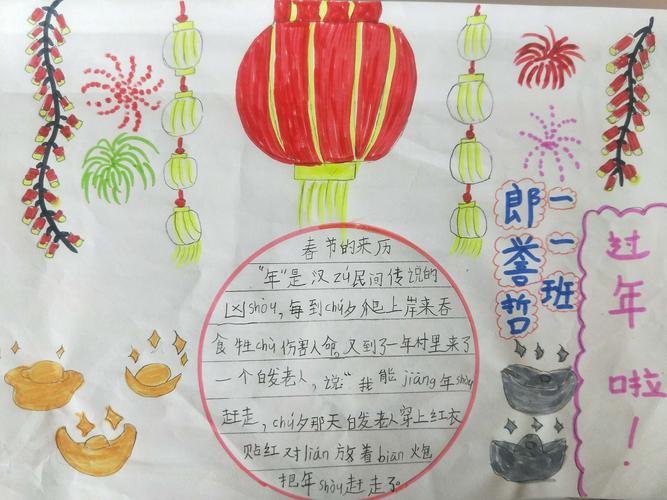 春节的来历
“年”是汉zú民间传说的
凶shòu,每到chú夕他上岸来吞
食牲chù伤害人命,又到了一年村里来了
一个白发老人,说:“我能jiāng年shòu
赶走,chú夕那天白发老人穿上红衣
贴红对lián放着biān炮
把年shòu赶走了。
一一班
郎誉哲
过年啦!